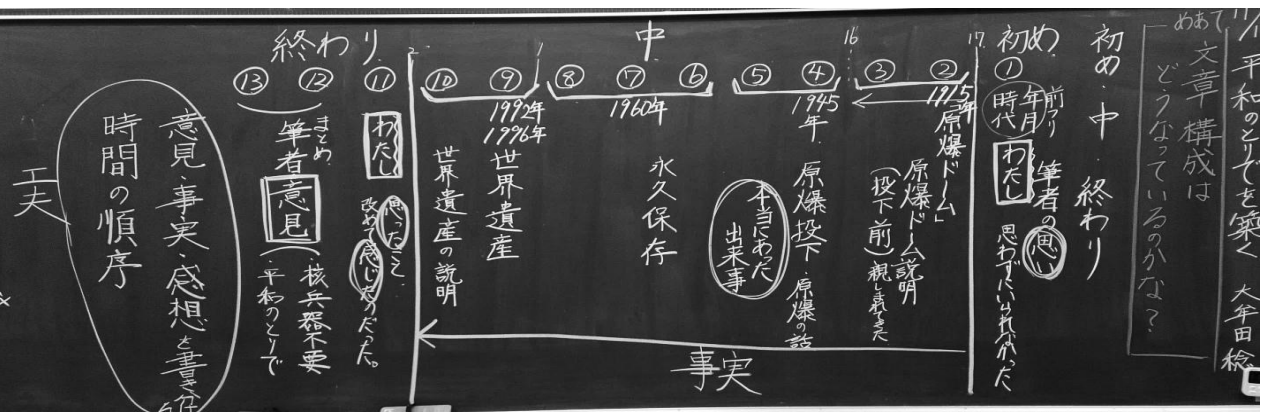 平和のとりでを築く 大牟田稔
めあて
文章構成は
どうなっているのかな?
初め・中・終わり
初め
①
前フリ
年月
時代
筆者の思い
わたし
思わずにいられなかった
中
②
1915年
「原爆ドーム」
③
原爆ドーム説明
(投下前)親しまれてきた
16
④
1945年
原爆投下・原爆の話
⑤
本当にあった
出来事
⑥
⑦
1960年
永久保存
⑧
⑨
1992年
1996年
世界遺産
⑩
世界遺産の説明
事実
終わり
⑪
わたし
思ったこと
改めて感じたのだった。
⑫
⑬
まとめ
筆者意見
・核兵器不要
・平和のとりで
意見・事実・感想と書き
時間の順序
工夫